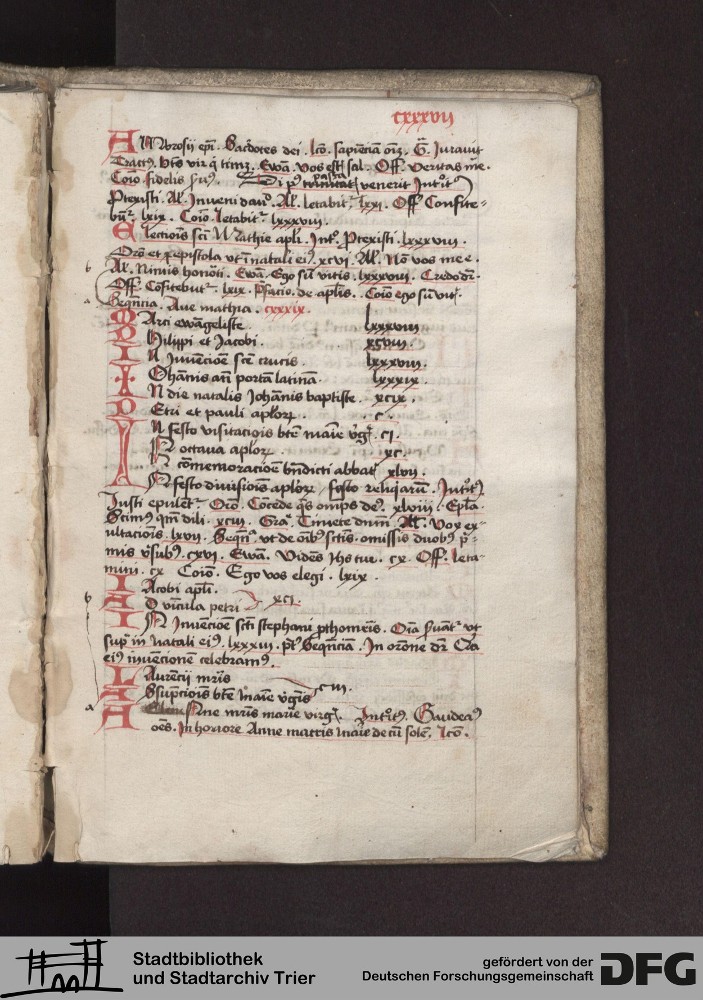 cxxxvii
AMbrosij ep̄i. Sac̄dotes dei. lc̄o. sapiēciā oīm. G̅. Iurauit
Tract9. bt̄us vir q̇ timȝ. Ewā. Vos estꝭ sal. Off. veritas me.
Cōio. fidelis s̄uus. Si p9 venerit Int̄oit9
Ptexisti. Al̄. Inveni dauid. Al̄. letabit᷑. lxxi. Off Confite-
būt᷑. lxix. Cōio. letabit᷑. lxxxviii.
Electiōis sc̄i Mathie apl̄i. Int̄o. Ptexisti. lxxxviii.
Or̄o et epistola vt ī natali ei9. xcvi. Al̄. Nō vos me e.
b Al̄. Nimis honoti. Ewā. Ego sū vitis. lxxxviii. Credo dr̄.
Off. Cōfitebūt᷑. lxix. p̄facio. de apl̄is. Cōio ego sū vit᷑.
a Seqn̄cia. Aue mathia. cxxxix.
Marci ewāgeliste. lxxxviii
Philippi et Jacobi. xcviii.
IN Invencōe sc̄e crucis. lxxxviii.
Iohānis an̄ portā latinā. lxxxix.
IN die natalis Johānis baptiste. xcix.
Petri et pauli aplor̄. c.
IN festo visitaciōis bt̄e marie v̄gīs. ci.
IN octava aplor̄. xc.
IN cōmemoracōe bn̄dicti abbatꝭ xlvii.
IN festo divisiōnis aplor̄. festo reliq̇arū. Int̄oit9
Justi epulent᷑. Or̄o. Cōcede q̄s om̄ps de9. xlviii. Epl̄a.
Scim9 qm̄ dili. xciii. Gra̅. Timete dn̄m. Al̄l. Vox ex-
ultaciōis. lxvii. Seqn̄. vt de oībꝰ sc̄tis. omissis duobꝰ p̄-
mis v̄subꝰ. cxvi. Ewā. Vidēs Ih̄s tur. cx. Off. leta-
mini. cx Cōio. Ego vos elegi. lxix.
Iacobi apl̄i.
b AD vincula petri xci.
IN Invēcōe sc̄ti stephani p̄thom̄ris. Oīa s̄uant᷑ vt
sup᷑ in natali ei9. lxxxiii. p̄t Seqn̄ciā. In or̄one dr̄ Cꝰ
ei9 invēcionē celebram9.
Laurēcij mr̄is
Assūpciōis bt̄e marie v̄gīs ciii.
a Anne mr̄is marie virgīs. Int̄oit9. Gaudeā9
oēs. In honore Anne matris marie de cū solē. lc̄o.
Stadtbibliothek
und Stadtarchiv Trier
gefördert von der
Deutschen Forschungsgemeinschaft
DFG